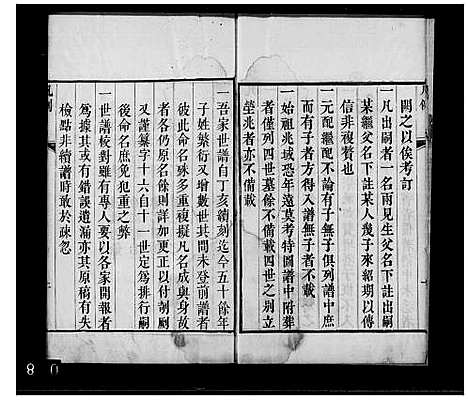 凡例
闕之以俟考訂
一凡出嗣者一名兩見生父名下註出嗣
某繼父名下註某人幾子來紹期以傳
信非複贅也
一元配繼配不論有子無子俱列譜中庶
而有子者方得入譜無子者不載
一始祖兆域恐年遠莫考特圖譜中附葬
者僅列四世墓餘不備載四世之別立
塋兆者亦不備載
一吾家世譜自丁亥續刻迄今五十餘年
子姓繁衍又增數世其間未登前譜者
彼此命名殊多重複擬凡名成與身故
者各仍原名餘則詳加更正以付剞劂
又謹纂字十六自十一世定為排行嗣
後命名庶免犯重之弊
一世譜校對雖有專人要以各家開報者
為據其或有錯誤遺漏亦其原稿有失
檢點非續譜時敢於疎忽
凡例
8 0